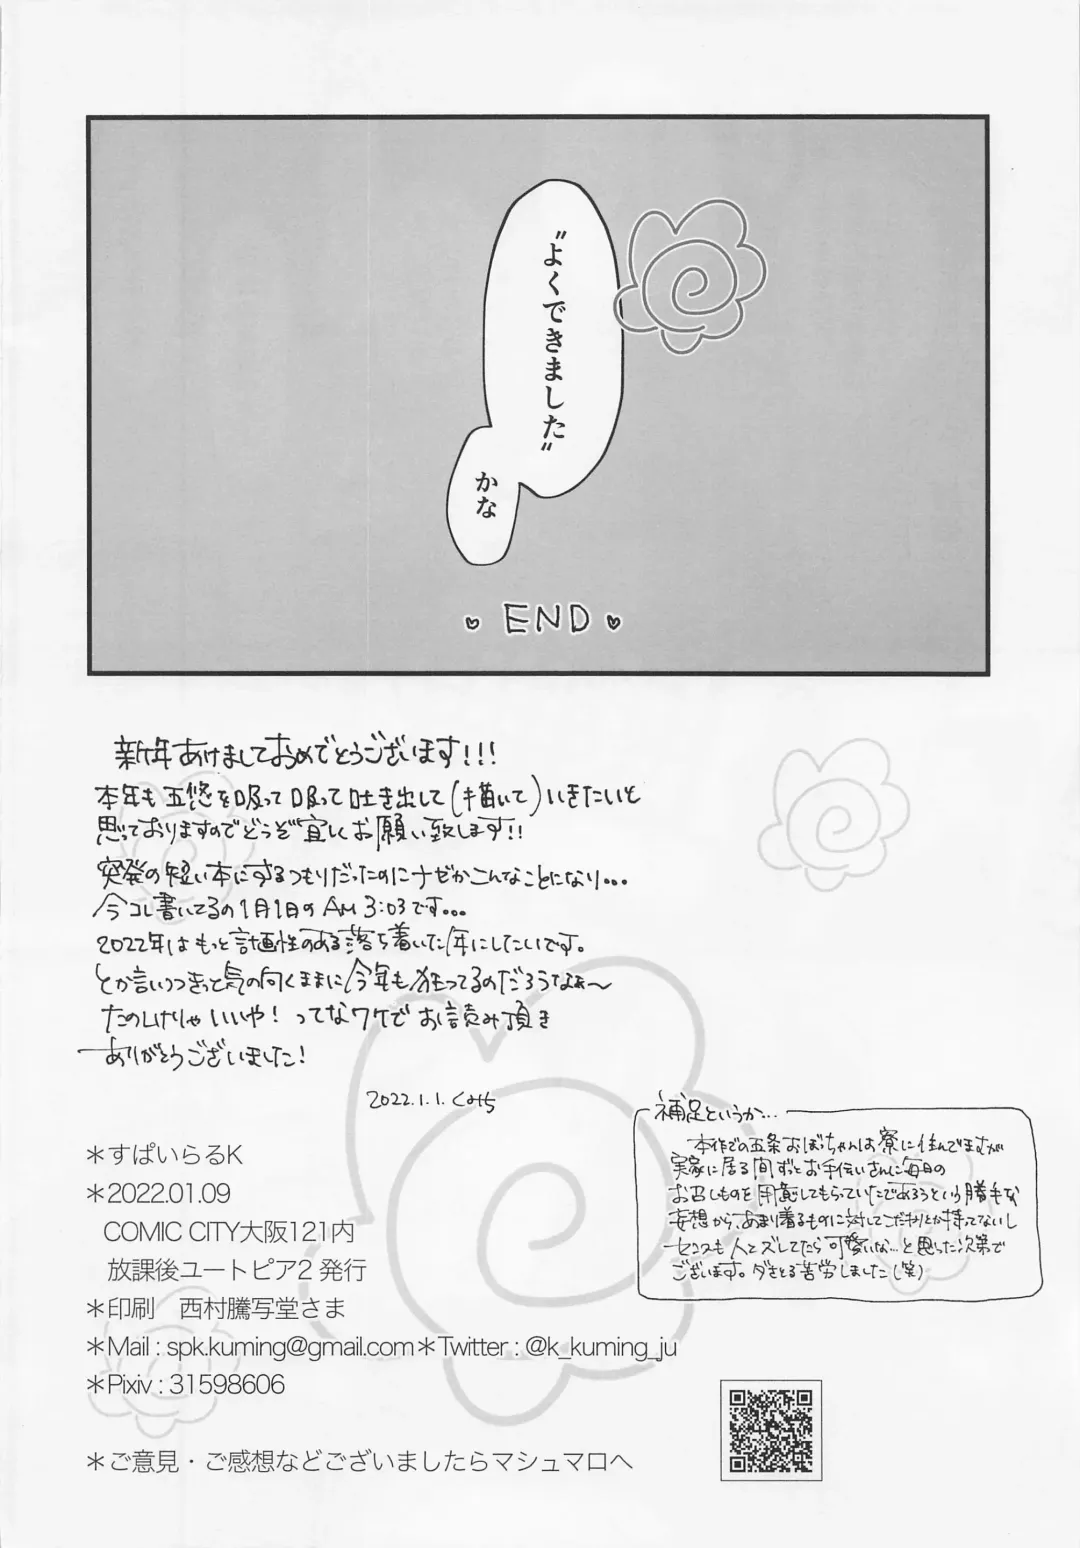 “よくできました”
かな
END
新年あけましておめでとうございます!!!
本年も五悠を吸って吸って吐き出して(描いて)いきたいと
思っておりますのでどうぞ宜しくお願い致します!!
突発の短い本にするつもりだったのにナゼかこんなことになり...
今コレ書いてるの1月1日のAM3:03です...
2022年はもっと計画性のある落ち着いた年にしたいです。
とか言いつつきっと気の向くままに今年も狂ってるのだろうなぁ〜
たのしけりゃいいや!ってなワケでお読み頂き
ありがとうございました!
2022.1.1.くみち
補足というか...
本作での五条おぼっちゃんは寮に住んでますが
実家に居る間ずっとお手伝いさんに毎日の
お召しものを用意してもらっていたであろうという勝手な
妄想から、あまり着るものに対してこだわりとか持ってないし
センスも人とズレてたら可愛いな...と思った次第で
ございます。ダサくする苦労しました(笑)
＊すぱいらるK
＊2022.01.09
COMIC CITY大阪121内
放課後ユートピア2 発行
＊印刷　西村謄写堂さま
＊Mail : spk.kuming@gmail.com＊Twitter : @k_kuming_ju
＊Pixiv : 31598606
＊ご意見・ご感想などございましたらマシュマロへ